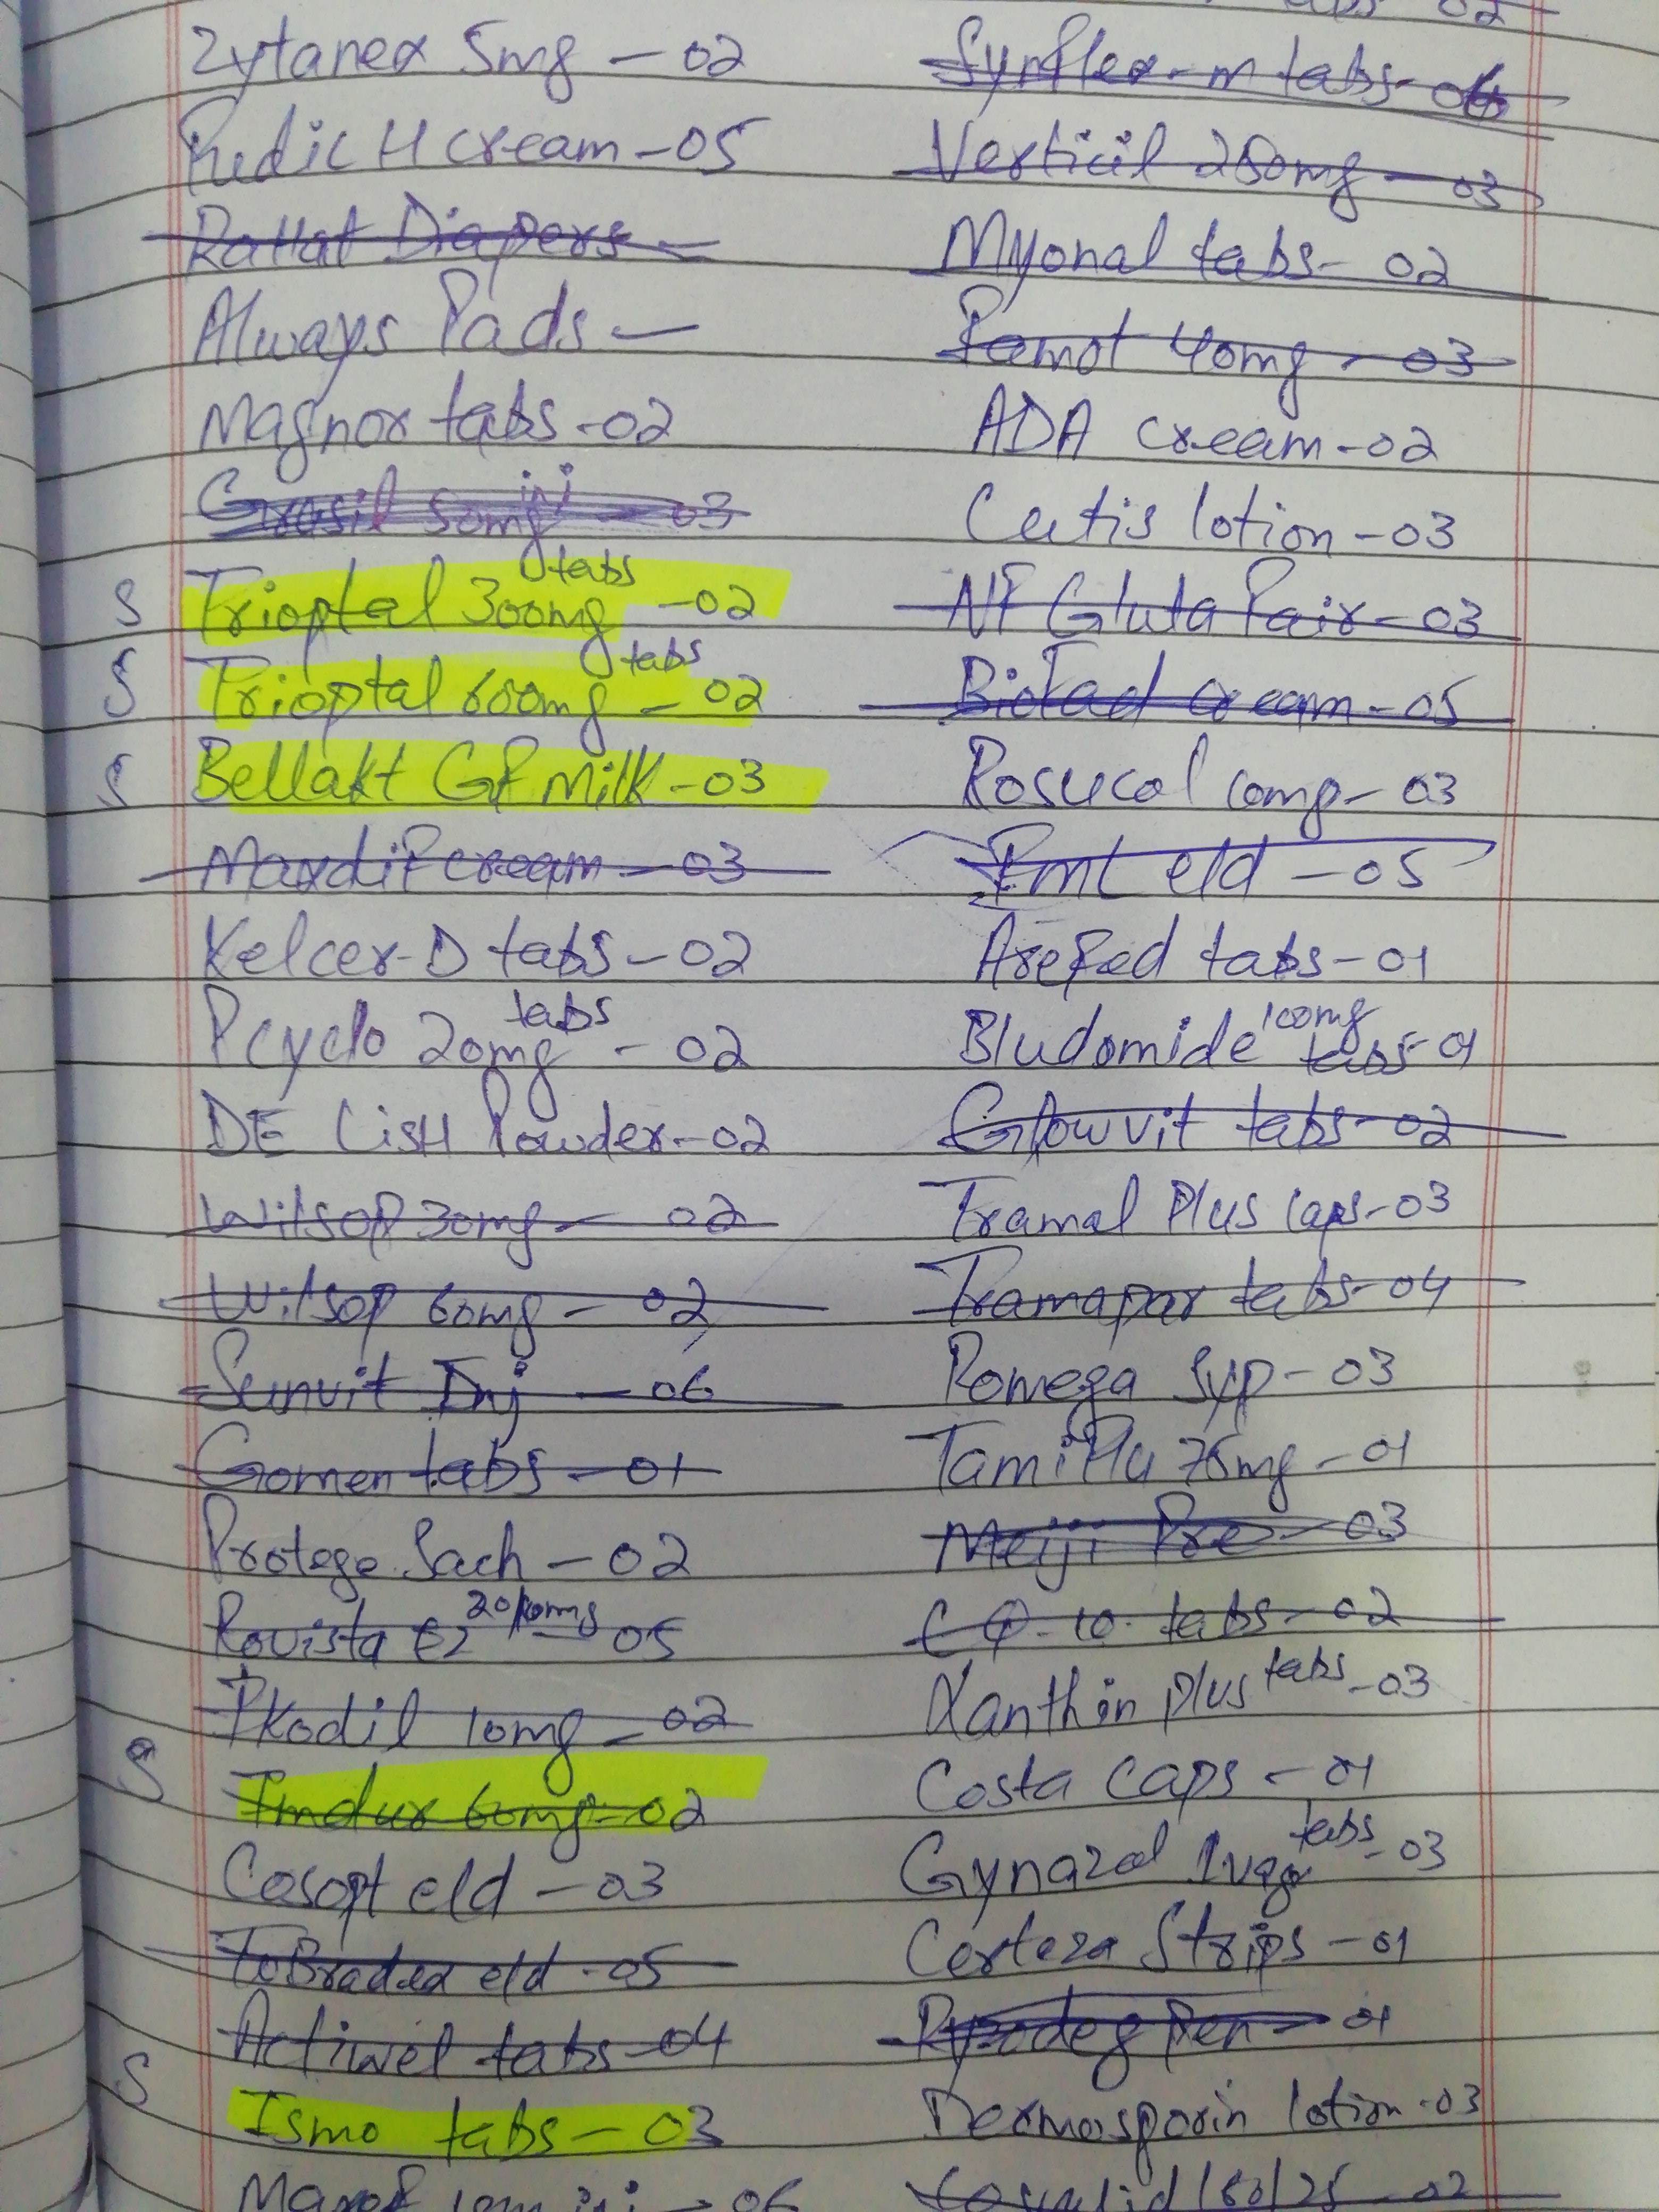 Zytanex 5mg - 02
Pudic H cream - 05
Rattat Diapers -
Always Pads -
Magnox tabs - 02
Grasil 50mg inj - 03
S Trioptal 300mg tabs - 02
S Trioptal 600mg tabs - 02
S Bellakt GR Milk - 03
Maxdif cream - 03
Kelcer-D tabs - 02
Pcyclo 20mg tabs - 02
DE Lish Powder - 02
Wilsop 30mg - 02
Wilsop 60mg - 02
Sunvit Inj - 06
Gomen tabs - 01
Protege Sach - 02
Rovista EZ 20/10mg - 05
Pkodil 10mg - 02
S Imdur 60mg - 02
Cosopt eld - 03
ToBradex eld - 05
Actiwel tabs - 04
S Ismo tabs - 03
inj - 06
tabs 02
Synflex-m tabs - 06
Verticil 250mg - 03
Myonal tabs - 02
Famot 40mg - 03
ADA cream - 02
Cutis lotion - 03
NF Gluta Fair - 03
BioFad cream - 05
Rosucol 10mg - 03
Fml eld - 05
Arefed tabs - 01
Bludomide 100mg tabs - 01
Glowvit tabs - 02
Tramal Plus caps - 03
Tramapar tabs - 04
Romega Syp - 03
Tamiflu 75mg - 01
Meiji Pre - 03
CQ-10 tabs - 02
Xanthin plus tabs - 03
Costa caps - 01
Gynazol 1 vag tabs - 03
Certeza Strips - 01
Ryzodeg Pen - 01
Dermosporin lotion - 03
Covalid 150/25 - 02